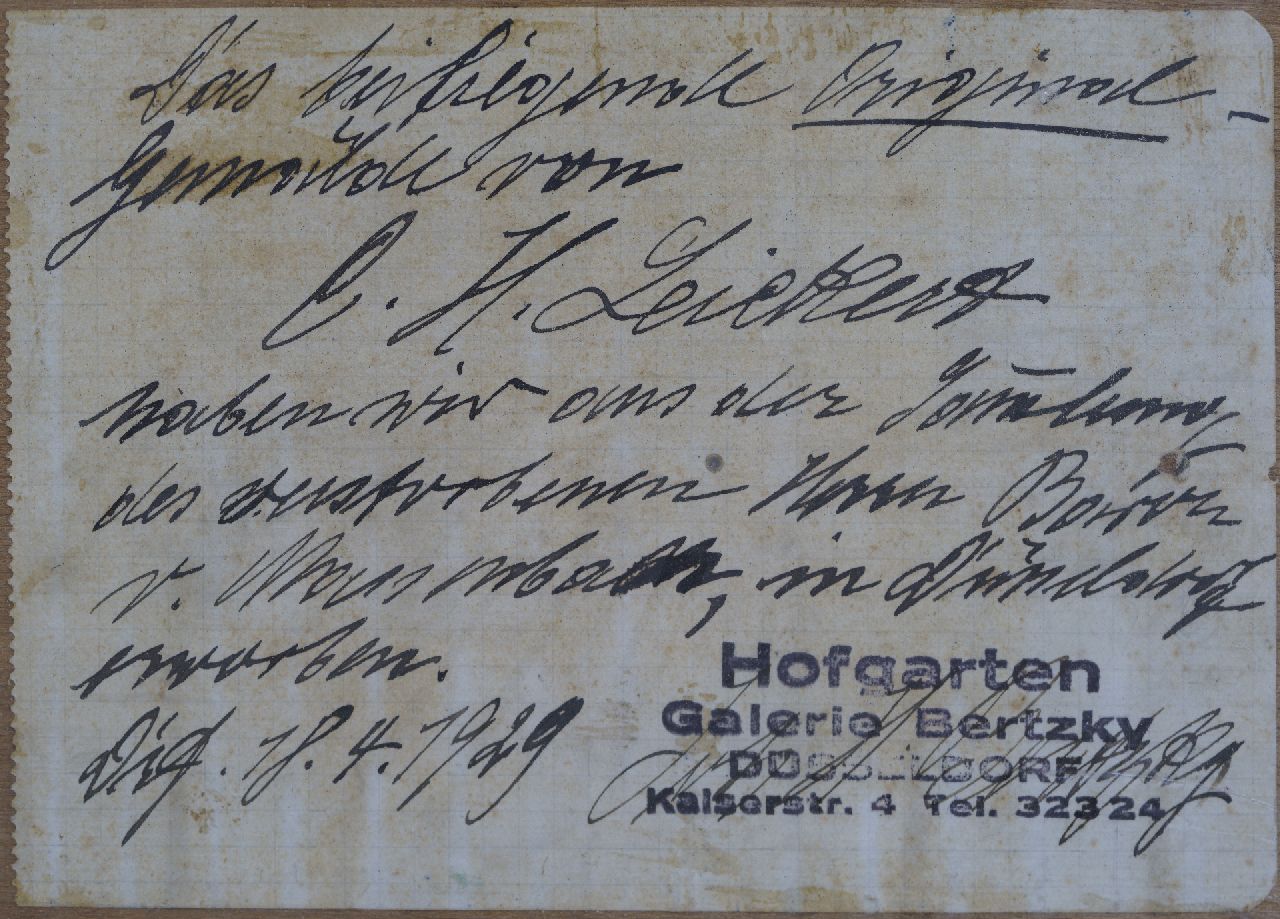 Das beiliegende Original-
Gemälde von
C. H. Leickert
haben wir aus der Sam̄lung
des verstorbenen Herrn Baron
v., in Düsseldorf
erworben.
Ddf. 18.4.1929
Hofgarten
Galerie Bertzky
DÜSSELDORF
Kaiserstr. 4 Tel. 32324